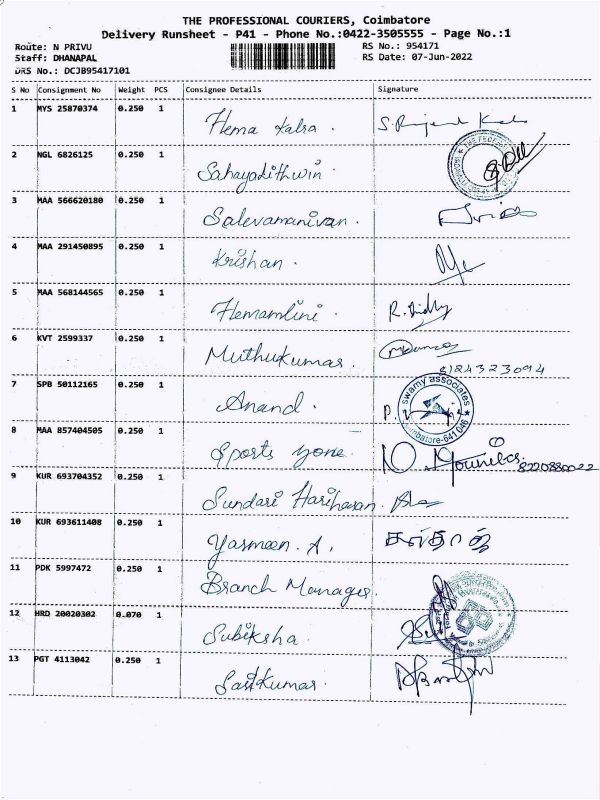 THE PROFESSIONAL COURIERS, Coimbatore
Delivery Runsheet - P41 - Phone No.:0422-3505555 - Page No.:1
Route: N PRIVU RS No.: 954171
Staff: DHANAPAL RS Date: 07-Jun-2022
DRS No.: DCJB95417101
S No Consignment No Weight PCS Consignee Details Signature
1 MYS 25870374 0.250 1 Hema Kalra.
2 NGL 6826125 0.250 1 Sahayadithwin
3 MAA 566620180 0.250 1 Salevamanivan.
4 MAA 291450895 0.250 1 Krishan.
5 MAA 568144565 0.250 1 Hemamlini. R.
6 KVT 2599337 0.250 1 Muthukumar.
7 SPB 50112165 0.250 1 Anand. P.
swamy associates
641 046
8 MAA 857404505 0.250 1 Sports zone. 8220880022
9 KUR 693704352 0.250 1 Sundari Hariharan.
10 KUR 693611408 0.250 1 Yasmeen. A.
11 PDK 5997472 0.250 1 Branch Manager.
12 HRD 20020302 0.070 1 Subiksha.
13 PGT 4113042 0.250 1 Sasikumar.